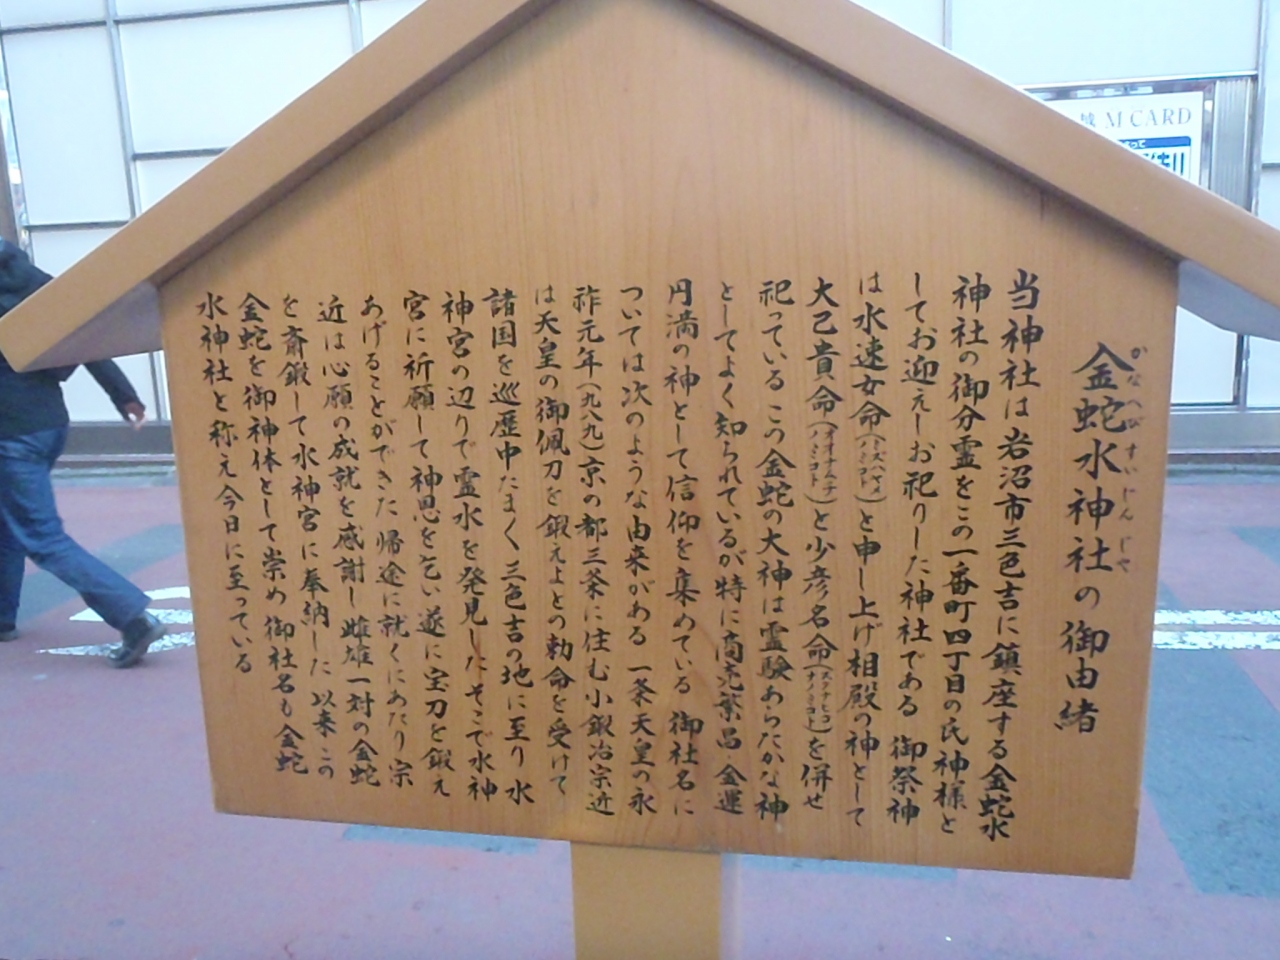 金蛇水神社の御由緒
かなへびすいじんじや
当神社は岩沼市三色吉に鎮座する金蛇水
神社の御分霊をこの一番町四丁目の氏神様と
してお迎えしお祀りした神社である 御祭神
は水速女命(ミズハヤメノミコト)と申し上げ相殿の神として
大己貴命(オオナムチノミコト)と少彦名命(スクナヒコナノミコト)を併せ
祀っている この金蛇の大神は霊験あらたかな神
としてよく知られているが特に商売繁昌・金運
円満の神として信仰を集めている 御社名に
ついては次のような由来がある 一条天皇の永
祚元年(九八九)京の都三条に住む小鍛冶宗近
は天皇の御佩刀を鍛えよとの勅命を受けて
諸国を巡歴中たまく三色吉の地に至り 水
神宮の辺りで霊水を発見した そこで水神
宮に祈願して神恩を乞い遂に宝刀を鍛え
あげることができた 帰途に就くにあたり宗
近は心願の成就を感謝し雌雄一対の金蛇
を斎鍛して水神宮に奉納した 以来この
金蛇を御神体として崇め 御社名も金蛇
水神社と称え今日に至っている
M CARD